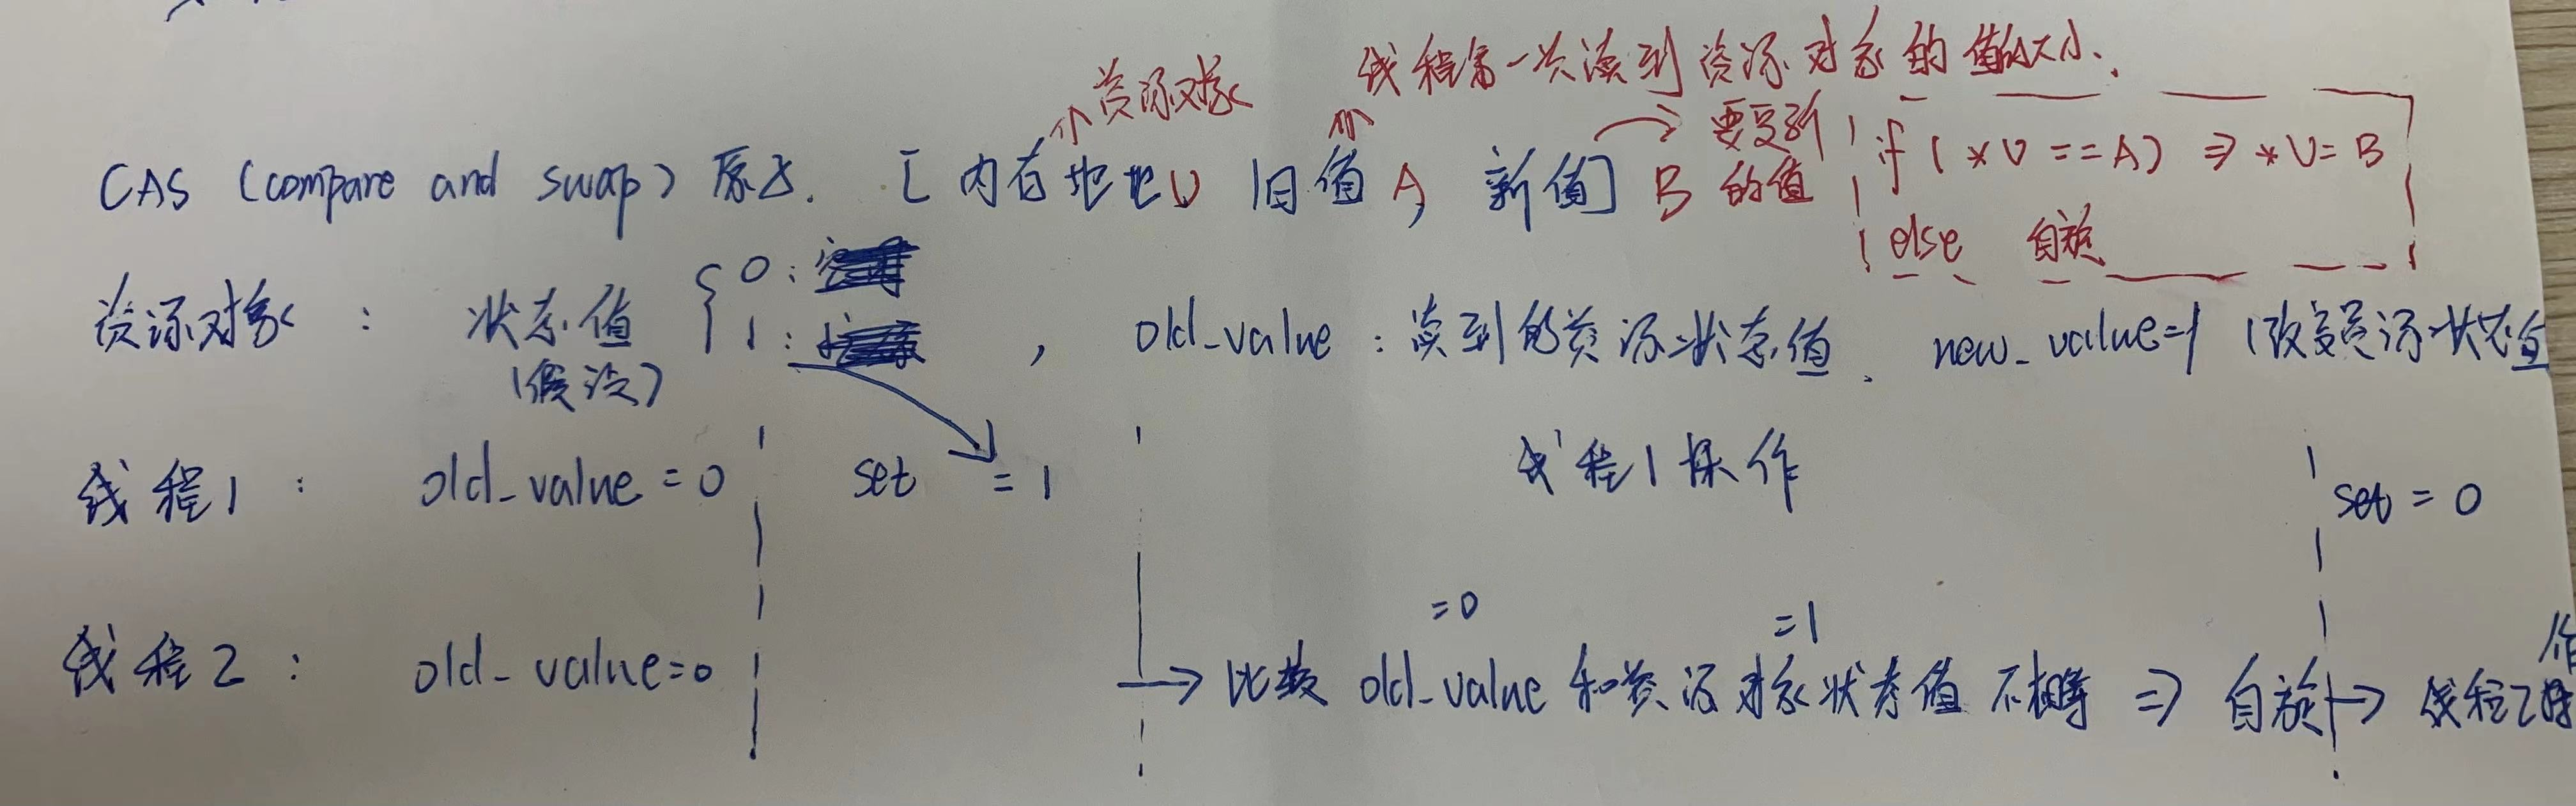 线程第一次读到资源对象的值的大小.
资源对象
CAS (compare and swap) 原子. [内存地址V 旧值A, 新值] B 要更新的值
if (*V == A) ⇒ *V = B
else 自旋
资源对象 : 状态值 { 0:
1: , old_value : 读到的资源状态值. new_value=1 (改变资源状态值
(假设)
线程1 : old_value = 0 set = 1 线程1操作 set = 0
=0 =1
线程2 : old_value=0 → 比较 old_value 和资源对象状态值 不相等 ⇒ 自旋 → 线程2操作